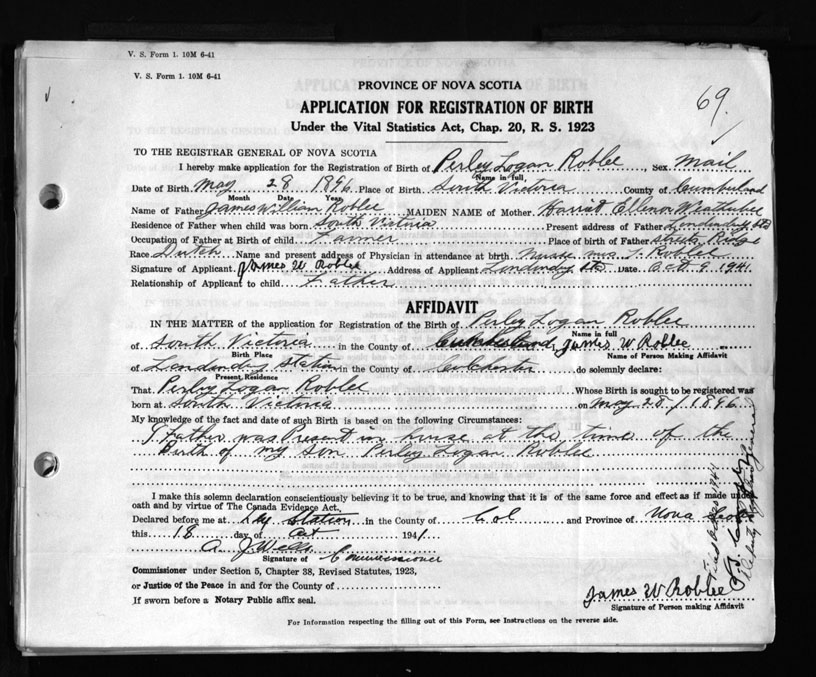 V. S. Form 1. 10M 6-41
V. S. Form 1. 10M 6-41
PROVINCE OF NOVA SCOTIA
APPLICATION FOR REGISTRATION OF BIRTH
69.
Under the Vital Statistics Act, Chap. 20, R. S. 1923
TO THE REGISTRAR GENERAL OF NOVA SCOTIA
I hereby make application for the Registration of Birth of Perley Logan Roblee, Sex Mail
Name in full
Date of Birth May 28 1896 Place of Birth South Victoria County of Cumberland
Month Date Year
Name of Father James William Roblee MAIDEN NAME of Mother Harriet Ellenor
Residence of Father when child was born South Victoria Present address of Father
Occupation of Father at Birth of child Farmer Place of birth of Father
Race Dutch Name and present address of Physician in attendance at birth. Nurse Mrs.
Signature of Applicant. James W Roblee Address of Applicant Date Oct 9 1941
Relationship of Applicant to child Father
AFFIDAVIT
IN THE MATTER of the application for Registration of the Birth of Perley Logan Roblee
Name in full
of South Victoria in the County of Cumberland, James W Roblee
Birth Place Name of Person Making Affidavit
of Station in the County of Colchester do solemnly declare:
Present Residence
That Perley Logan Roblee Whose Birth is sought to be registered was
born at South Victoria on May 28 / 1896
My knowledge of the fact and date of such Birth is based on the following Circumstances:
I Father was Present in house at the time of the
Birth of my son Perley Logan Roblee
I make this solemn declaration conscientiously believing it to be true, and knowing that it is of the same force and effect as if made under
oath and by virtue of The Canada Evidence Act.
Declared before me at Station in the County of Col and Province of Nova
this 18 day of Oct 1941
A. J. Wells Commissioner
Signature of
Commissioner under Section 5, Chapter 38, Revised Statutes, 1923,
or Justice of the Peace in and for the County of
James W Roblee
If sworn before a Notary Public affix seal.
Signature of Person making Affidavit
For Information respecting the filling out of this Form, see Instructions on the reverse side.